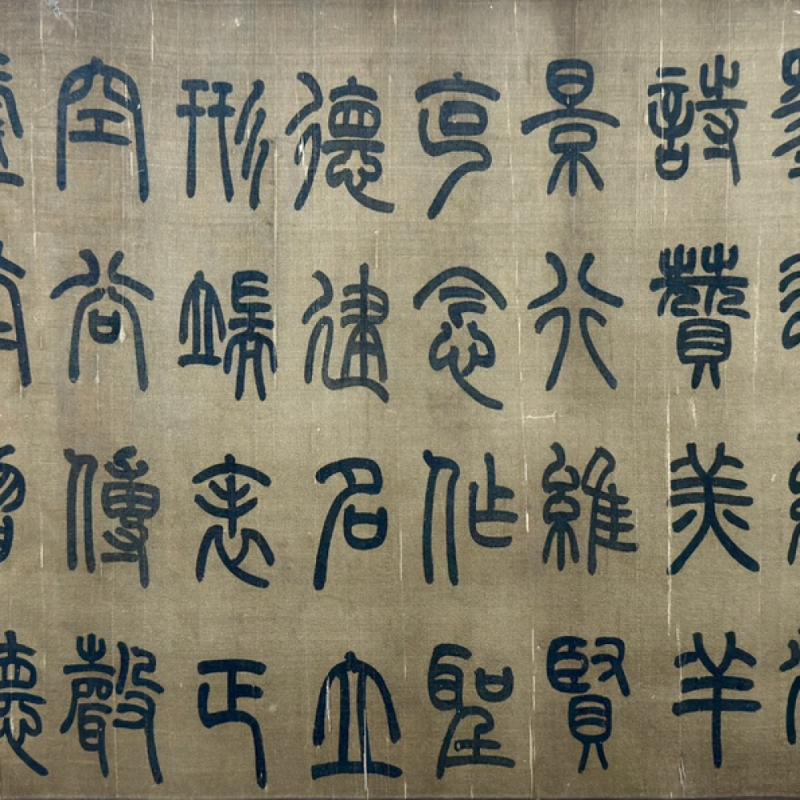 詩贊羔羊
景行維賢
克念作聖
德建名立
形端表正
空谷傳聲